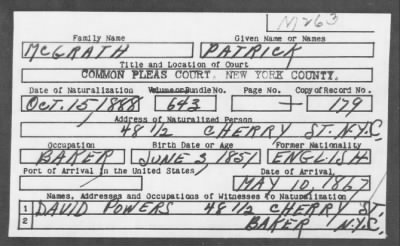 M263
Family Name Given Name or Names
McGRATH PATRICK
Title and Location of Court
COMMON PLEAS COURT, NEW YORK COUNTY.
Date of Naturalization Volume or Bundle No. Page No. Copy of Record No.
OCT. 15, 1888 643 — 179
Address of Naturalized Person
48 1/2 CHERRY ST. N.Y.C.
Occupation Birth Date or Age Former Nationality
BAKER JUNE 3, 1851 ENGLISH
Port of Arrival in the United States Date of Arrival
MAY 10, 1867
Names, Addresses and Occupations of Witnesses to Naturalization
1 DAVID POWERS 48 1/2 CHERRY ST.
2 BAKER N.Y.C.